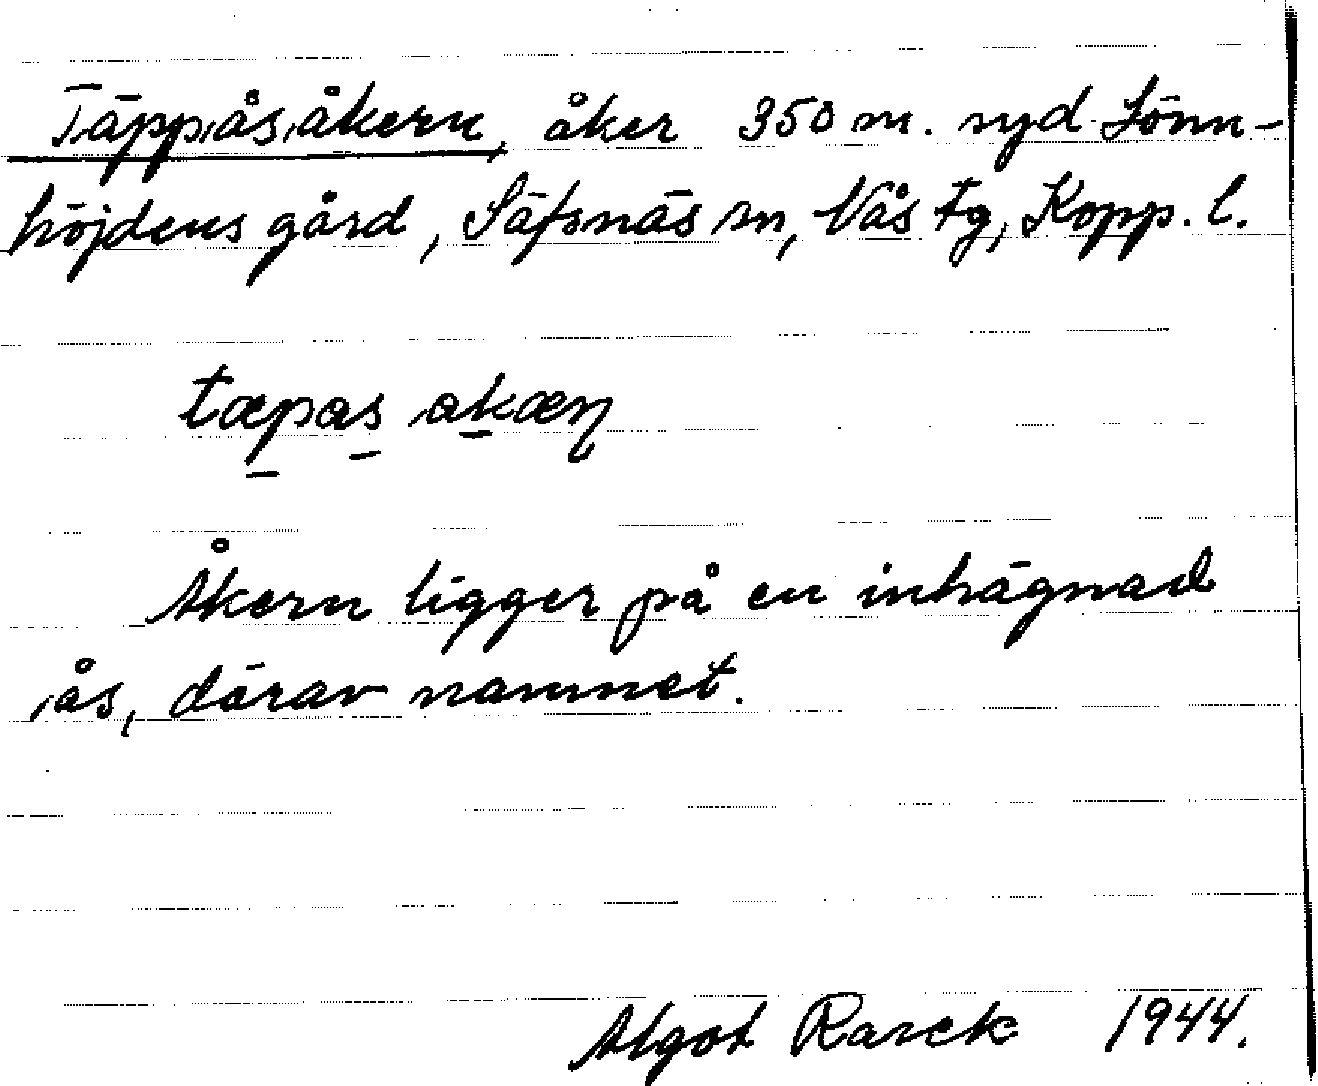 Täppåsåkern, åker 350 m. syd Lönn-
höjdens gård, Säfsnäs sn, Nås Fg, Kopp. l.
tæpas akæn
Åkern ligger på en inhägnad
ås, därav namnet.
Algot Rasck 1944.